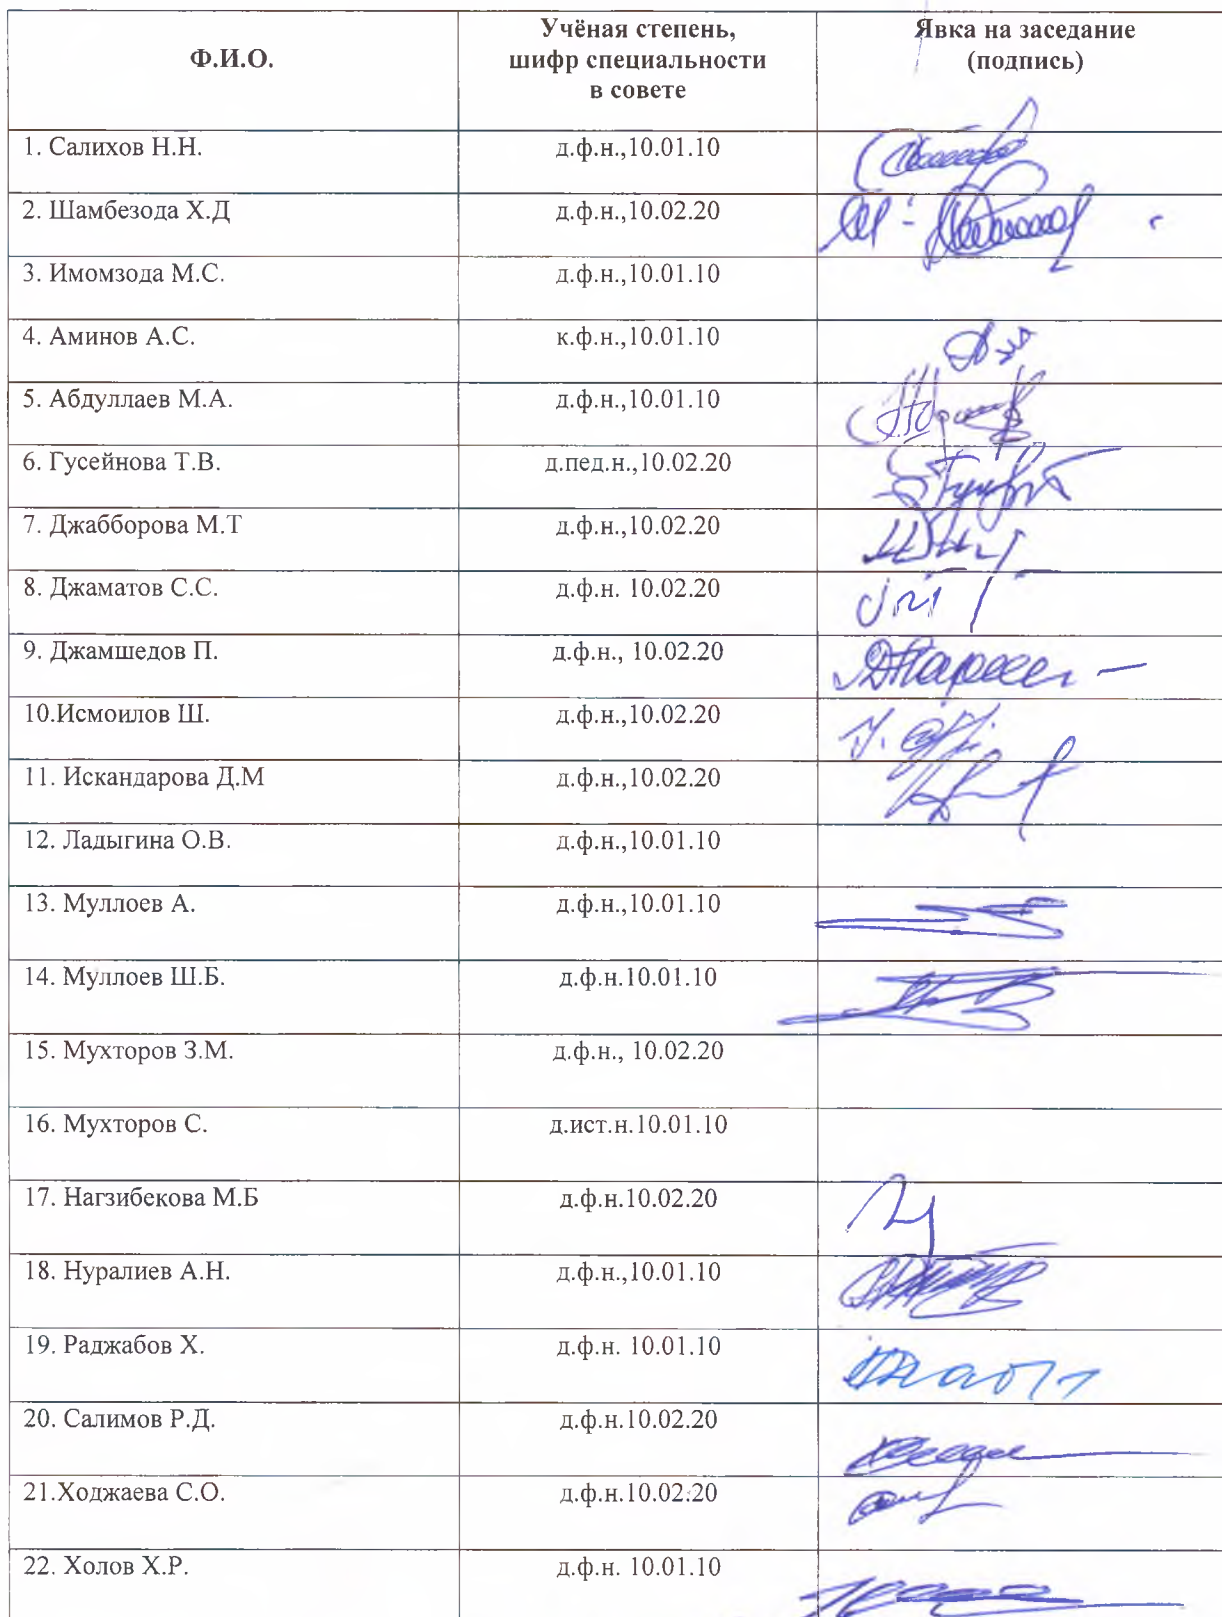 Ф.И.О.
Учёная степень,
шифр специальности
в совете
Явка на заседание
(подпись)
1. Салихов Н.Н. д.ф.н.,10.01.10
2. Шамбезода Х.Д д.ф.н.,10.02.20
3. Имомзода М.С. д.ф.н.,10.01.10
4. Аминов А.С. к.ф.н.,10.01.10
5. Абдуллаев М.А. д.ф.н.,10.01.10
6. Гусейнова Т.В. д.пед.н.,10.02.20
7. Джабборова М.Т д.ф.н.,10.02.20
8. Джаматов С.С. д.ф.н. 10.02.20
9. Джамшедов П. д.ф.н., 10.02.20
10.Исмоилов Ш. д.ф.н.,10.02.20
11. Искандарова Д.М д.ф.н.,10.02.20
12. Ладыгина О.В. д.ф.н.,10.01.10
13. Муллоев А. д.ф.н.,10.01.10
14. Муллоев Ш.Б. д.ф.н.10.01.10
15. Мухторов З.М. д.ф.н., 10.02.20
16. Мухторов С. д.ист.н.10.01.10
17. Нагзибекова М.Б д.ф.н.10.02.20
18. Нуралиев А.Н. д.ф.н.,10.01.10
19. Раджабов Х. д.ф.н. 10.01.10
20. Салимов Р.Д. д.ф.н.10.02.20
21.Ходжаева С.О. д.ф.н.10.02.20
22. Холов Х.Р. д.ф.н. 10.01.10